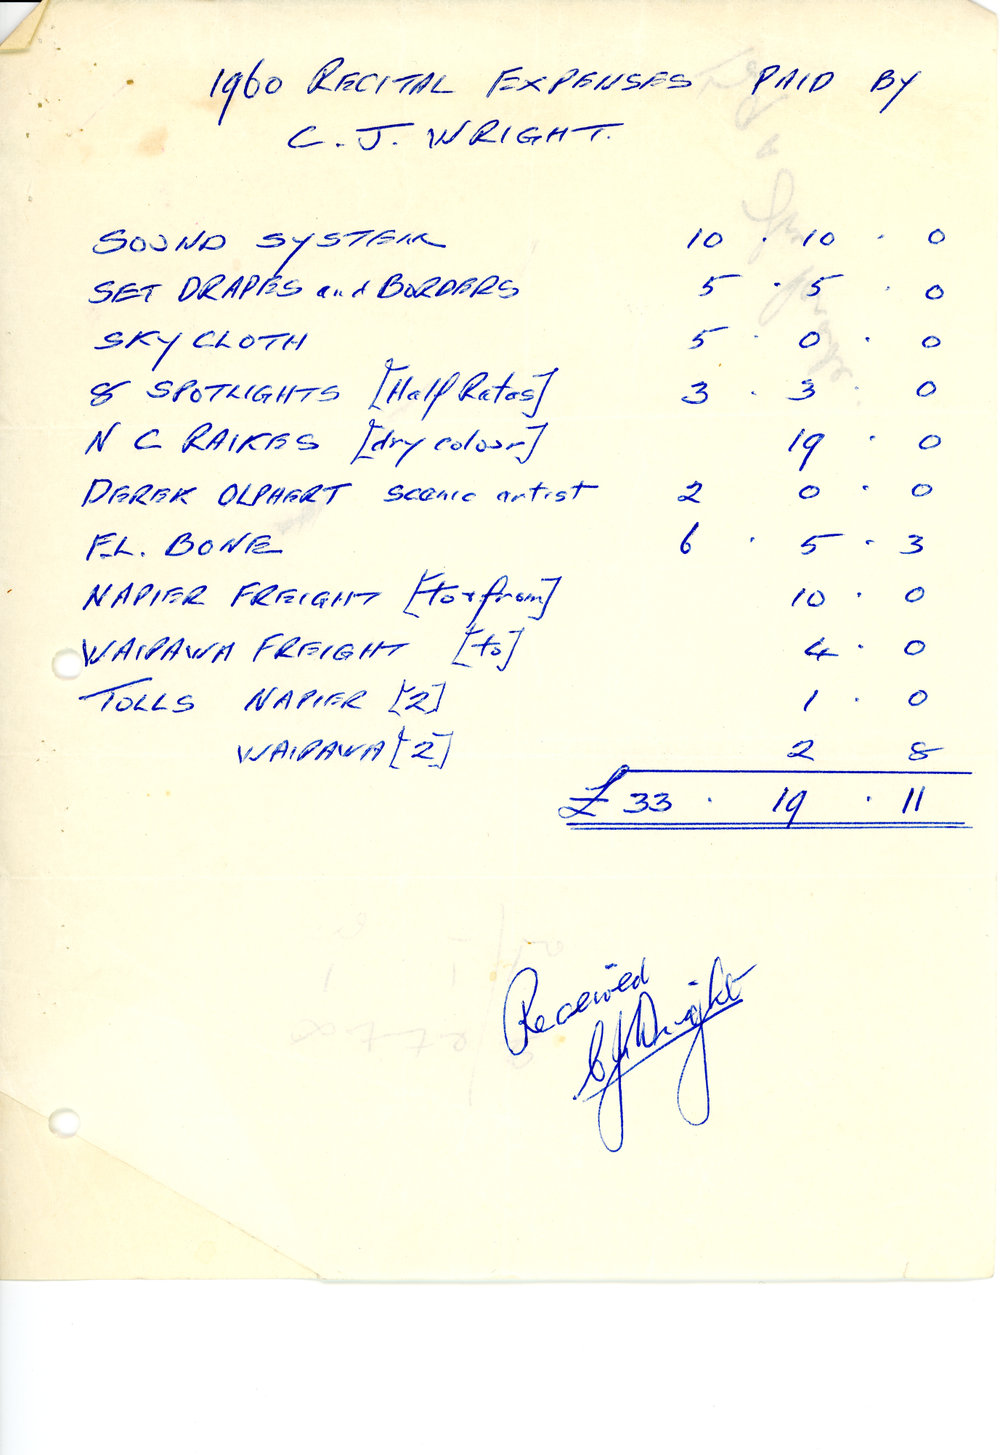 1960 RECITAL EXPENSES PAID BY
C. J. WRIGHT.
SOUND SYSTEM 10 . 10 . 0
SET DRAPES and BORDERS 5 . 5 . 0
SKY CLOTH 5 . 0 . 0
8 SPOTLIGHTS [Half Rates] 3 . 3 . 0
N C RAIKES [dry colour] 19 . 0
DEREK OLPHERT scenic artist 2 0 . 0
F.L. BONE 6 . 5 . 3
NAPIER FREIGHT [to & from] 10 . 0
WAIPAWA FREIGHT [to] 4 . 0
TOLLS NAPIER [2] 1 . 0
WAIPAWA [2] 2 8
£ 33 . 19 . 11
Received
CJWright